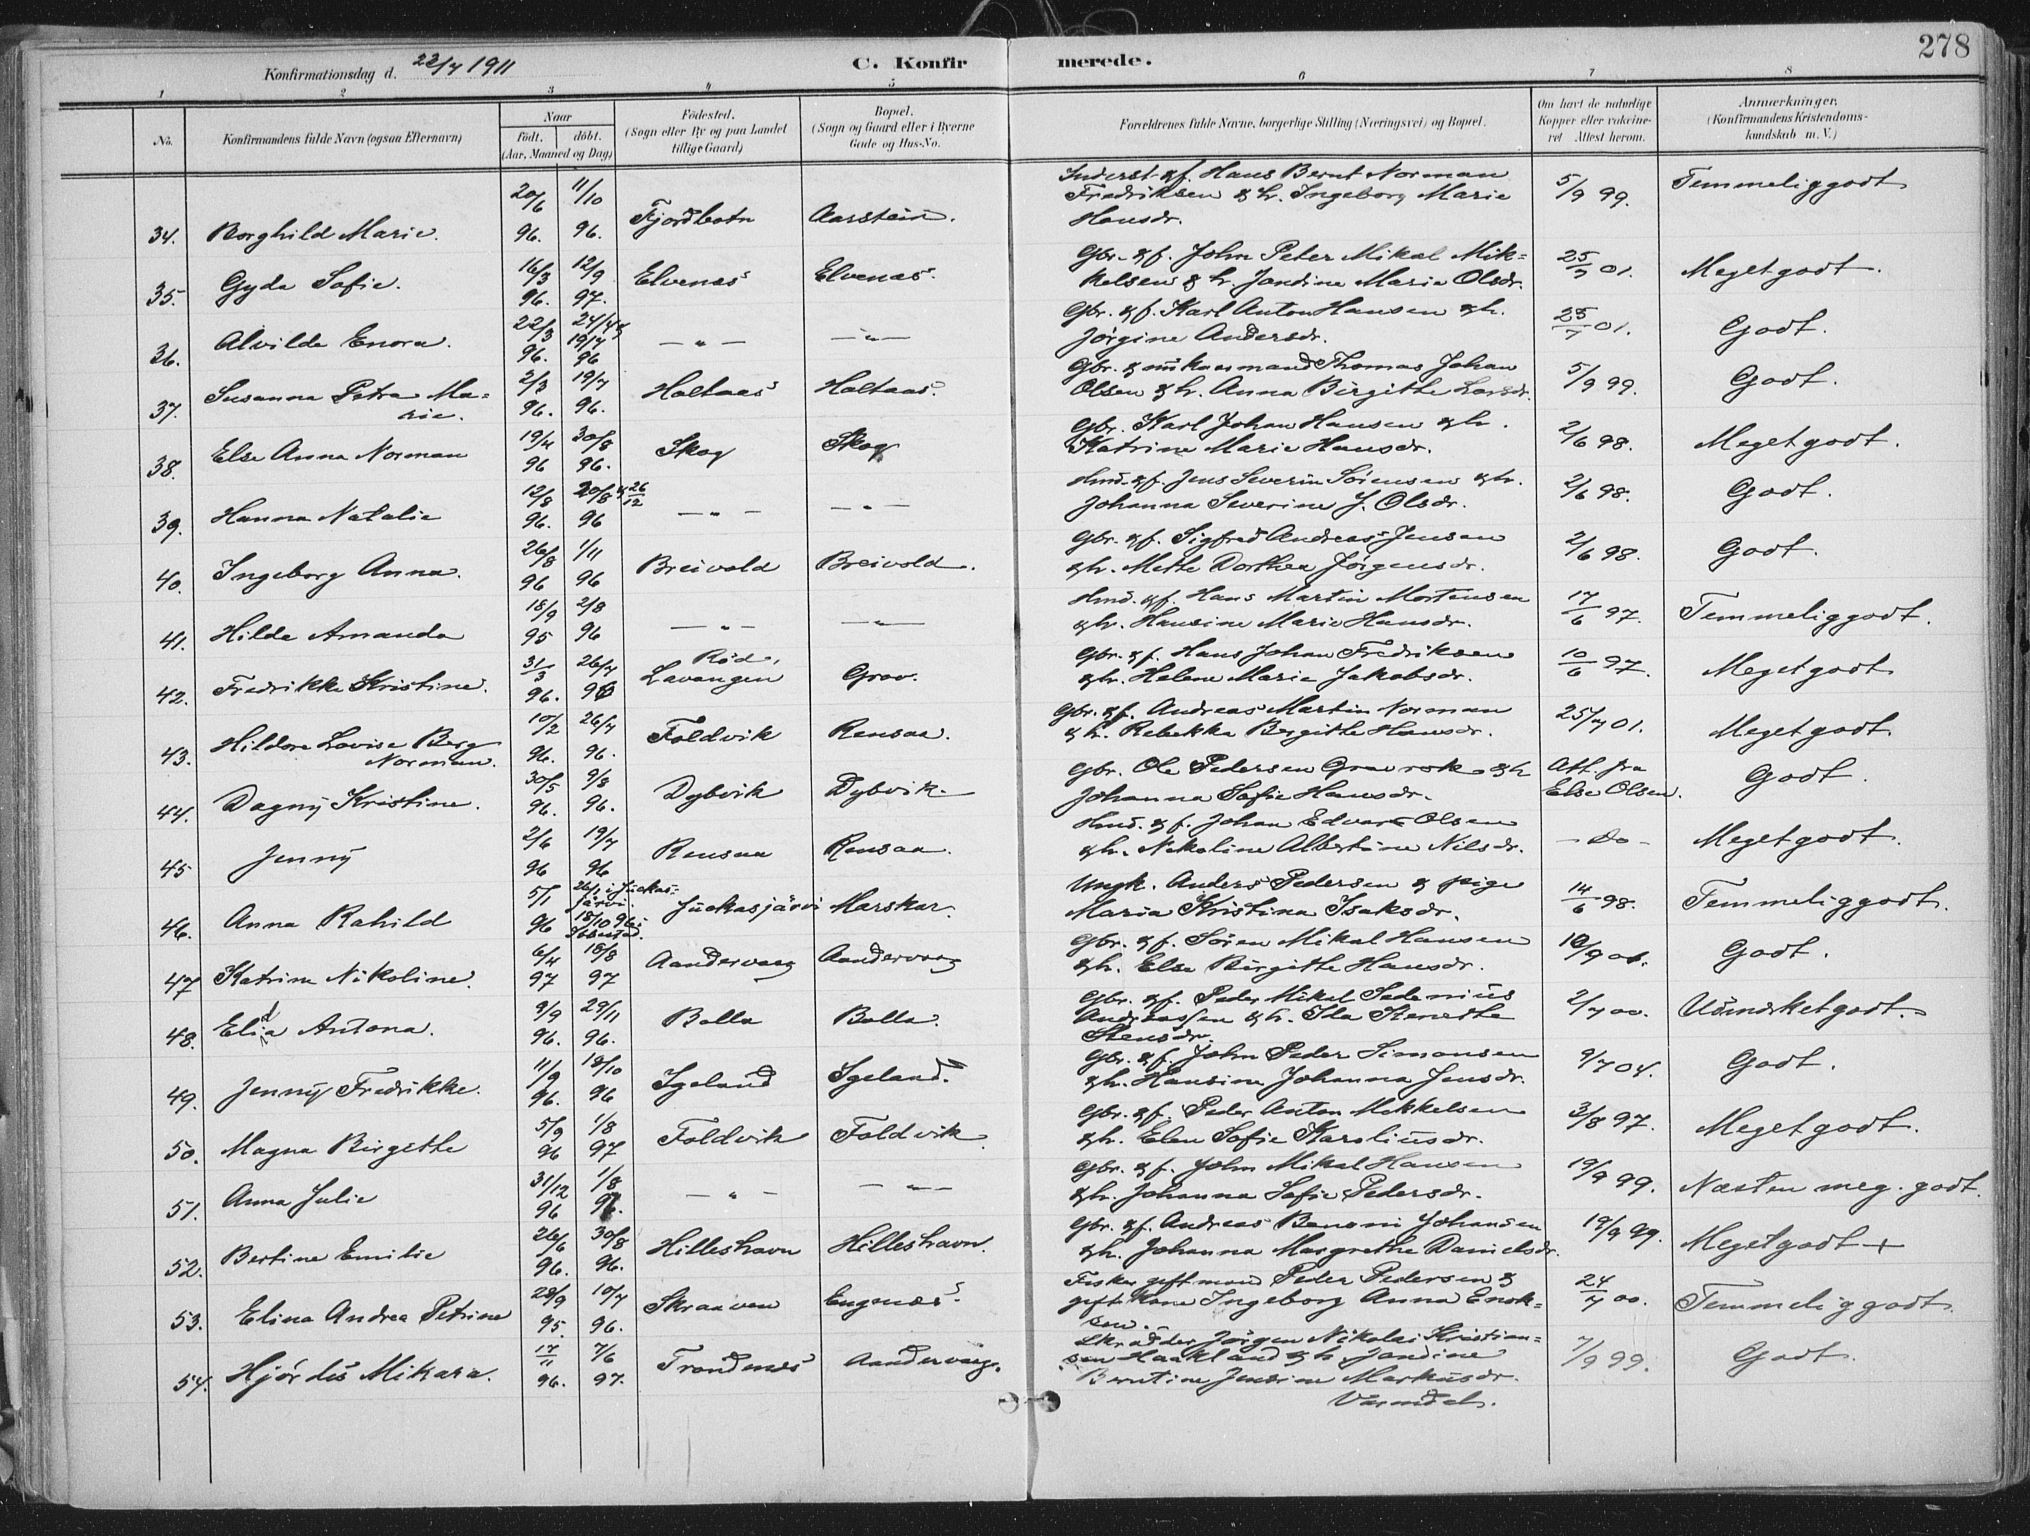 278
Konfirmationsdag d. 23/7 1911
C. Konfirmerede.
1 2 3 4 5 6 7 8
No.
Konfirmandens fulde Navn (ogsaa Efternavn)
Naar
født. døbt.
(Aar, Maaned og Dag)
Fødested.
(Sogn eller By og paa Landet
tillige Gaard)
Bopæl.
(Sogn og Gaard eller i Byerne
Gade og Hus-No.
Forældrenes fulde Navne, borgerlige Stilling (Næringsvei) og Bopæl.
Om havt de naturlige
Kopper eller vakcine-
ret Attest herom.
Anmærkninger.
(Konfirmandens Kristendoms-
kundskab m. V.)
34. Borghild Marie. 20/6 96. 11/10 96. Fjordbotn Aarstein. Inderst. gf. Hans Bernt Norman
Fredriksen & h. Ingeborg Marie
Hansdr. 5/9 99. Temmelig godt
35. Gyda Sofie. 16/3 96. 12/9 97. Elvenes Elvenes. Gbr. gf. John Peter Mikal Mik-
kelsen & h. Jandine Marie Olsdr. 25/7 01. Meget godt.
36. Alvilde Enora. 22/3 96. 19/7 96 — „ — — „ — Gbr. gf. Karl Anton Hansen & h.
Jørgine Andersdr. 25/7 01. Godt.
37. Susanna Petra Ma-
rie. 2/3 96. 19/7 96. Holtaas Holtaas. Gbr. & enkemand Thomas Johan
Olsen & h. Anna Birgithe Larsdr. 5/9 99. Godt.
38. Else Anna Norman 19/4 96 30/8 96. Skog Skog Gbr. Karl Johan Hansen & h.
Katrine Marie Hansdr. 2/6 98. Meget godt.
39. Hanna Natalie 12/8 96. 20/8 & 26/12 96 — „ — — „ — Hmd. gf. Jens Severin Sørensen & h.
Johanna Severine J. Olsdr. 2/6 98. Godt.
40. Ingeborg Anna. 26/8 96 1/11 96 Breivold Breivold. Gbr. gf. Sigfred Andreas Jensen
& h. Mette Dorthea Jørgensdr. 2/6 98. Godt.
41. Hilda Amanda 18/9 95 2/8 96 — „ — — „ — Hmd. gf. Hans Martin Mortensen
& h. Hansine Marie Hansdr. 17/6 97. Temmelig godt.
42. Fredrikke Kristine. 31/3 96. 26/7 96 Rød,
Lavangen Grov. Gbr. gf. Hans Johan Fredriksen
& h. Helene Marie Jakobsdr. 10/6 97. Meget godt
43. Hildora Lovise Berg
Norman. 10/2 96. 26/7 96. Foldvik Rensaa. Gbr. gf. Andreas Martin Norman
& h. Rebekka Birgithe Hansdr. 25/7 01. Meget godt
44. Dagny Kristine. 30/5 96. 9/8 96. Dybvik Dybvik. Gbr. Ole Pedersen Gravrok & h
Johanna Sofie Hansdr. Att. fra
Else Olsen. Godt.
45 Jenny 2/6 96 19/7 96 Rensaa Rensaa. Hmd. gf. Johan Edvart Olsen
& h. Nekoline Albertine Nilsdr. — Do — Meget godt.
46. Anna Rahild 5/1 96 26/1 i Juckas-
järvi.
18/10 96 i
Ibbestad. Juckasjärvi Marskar. Ungk. Anders Pedersen & pige
Maria Kristina Isaksdr. 14/6 98. Temmelig godt.
47 Katrine Nikoline. 6/4 97 18/8 97 Aandervaag Aandervaag Gbr. gf. Søren Mikal Hansen
& h. Else Birgithe Hansdr. Godt.
48. Antona. 9/9 96. 29/11 96. Bolla Bolla. Gbr. gf. Peder Mikal Sedenius
Andreassen & h. Ida
Stensdr. 2/7 00. Udmerket godt.
49. Jenny Fredrikke. 11/9 96. 18/10 96 Igeland Igeland. Gbr. gf. John Peder Simonsen
& h. Hansine Johanna Jensdr. 9/7 04. Godt.
50. Magna Birgithe 5/9 96 1/8 97 Foldvik Foldvik Gbr. gf. Peder Anton Mekkelsen
& h. Elen Sofie Karoliusdr. 3/8 97. Meget godt.
51. Anna Julie 31/12 96 1/8 97. — „ — — „ — Gbr. gf. John Mikal Hansen
& h. Johanna Sofie Pedersdr. 19/9 99. Næsten meg. godt.
52. Bertine Emilie 26/6 96. 30/8 96. Hilleshavn Hilleshavn. Gbr. gf. Andreas Benoni Johansen
& h. Johanna Margrethe Danielsdr. 19/9 99. Meget godt +
53. Elina Andrea Petrine 28/9 95. 10/7 96. Skraaven Engenæs. Fisker gift mand Peder Pedersen &
gift kone Ingeborg Anna Enok-
sen. 24/7 00. Temmelig godt.
54. Hjørdis Mikara. 17/11 96. 7/6 97. Trondenes Aandervaag. Skrædder Jørgen Nikolai Kristian-
sen Haakland & h. Jandine
Berntine Jensine Markusdr.
7/9 99. Godt.